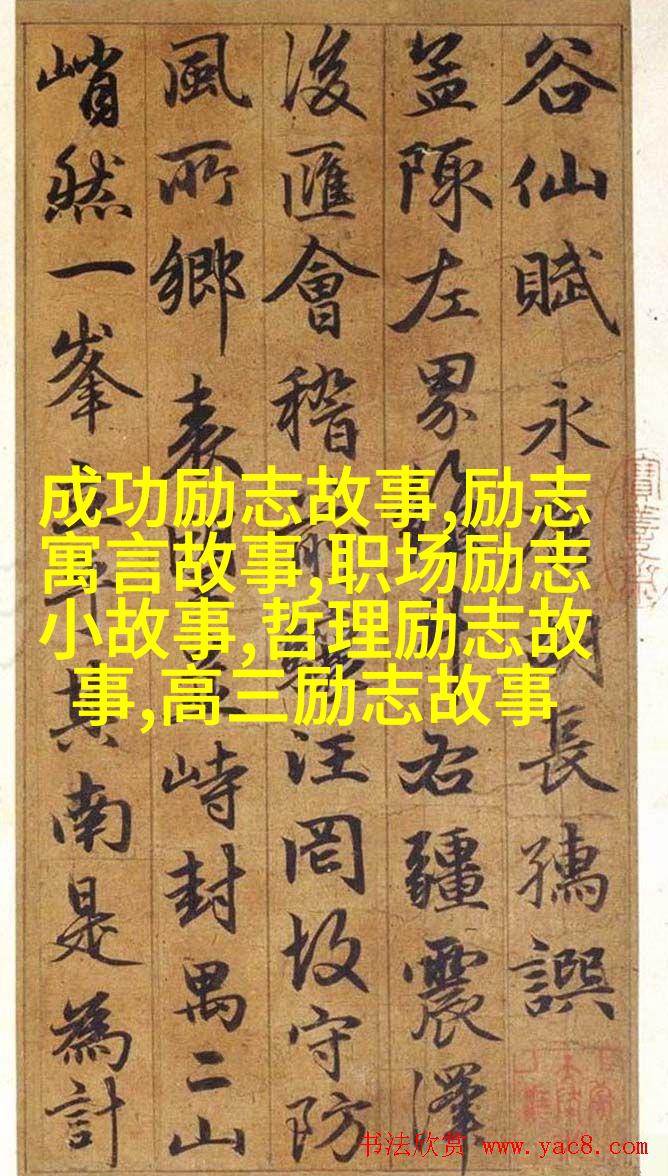 谷仙賦 永胡長孺譔
盖陬左界右疆震澤
後匯會稽汪罔故守防
風所鄉表峙封禺二山
峭然一峯其南是為計
成功励志故事,励志
寓言故事,职场励志
小故事,哲理励志故
事,高三励志故事
书法欣赏 www.yac8.com